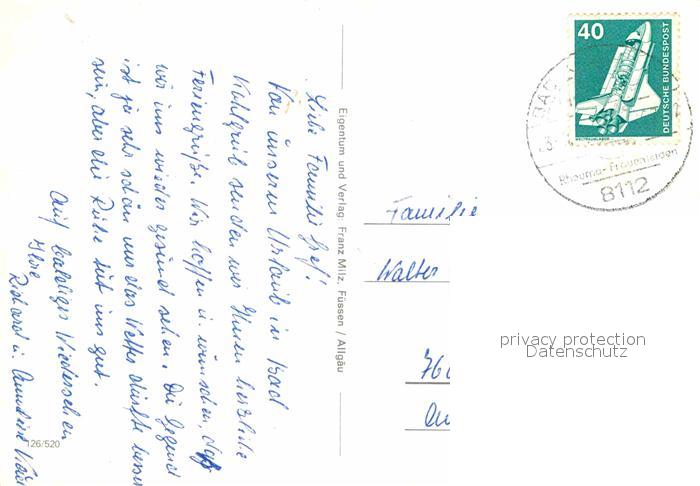 Liebe Familie Graf!
Von unserem Urlaub in Bad
Kohlgrub senden wir Ihnen herzliche
Feriengrüße. Wir hoffen u. wünschen, daß
wir uns wieder gesund sehen. Die Gegend
ist ja sehr schön nur das Wetter dürfte besser
sein, aber die Ruhe tut uns gut.
Auf baldiges Wiedersehen
Ihre
Richard u. Anneliese
126/520
Eigentum und Verlag: Franz Milz, Füssen / Allgäu
40
DEUTSCHE BUNDESPOST
WELTRAUMLABOR
BAD
Rheuma- Frauenleiden
8112
Familie
Walter
76
privacy protection
Datenschutz